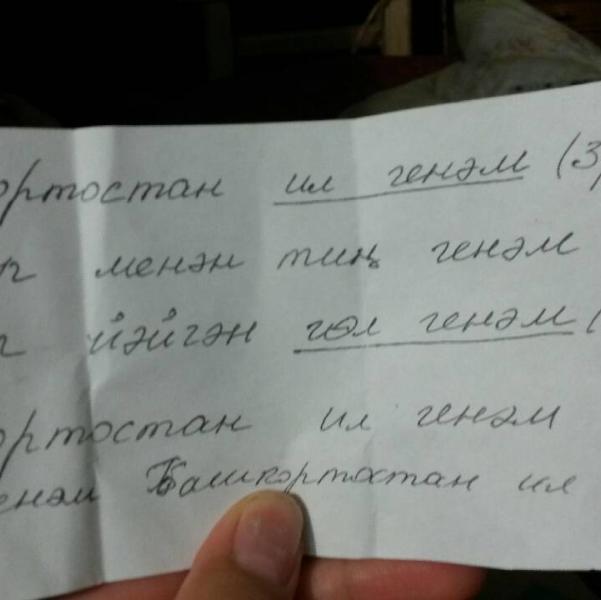 ортостан ил генәм (3)
менән тиң генәм
йәйгән гөл генәм (
ортостан ил генәм
генәм Башкортостан ил